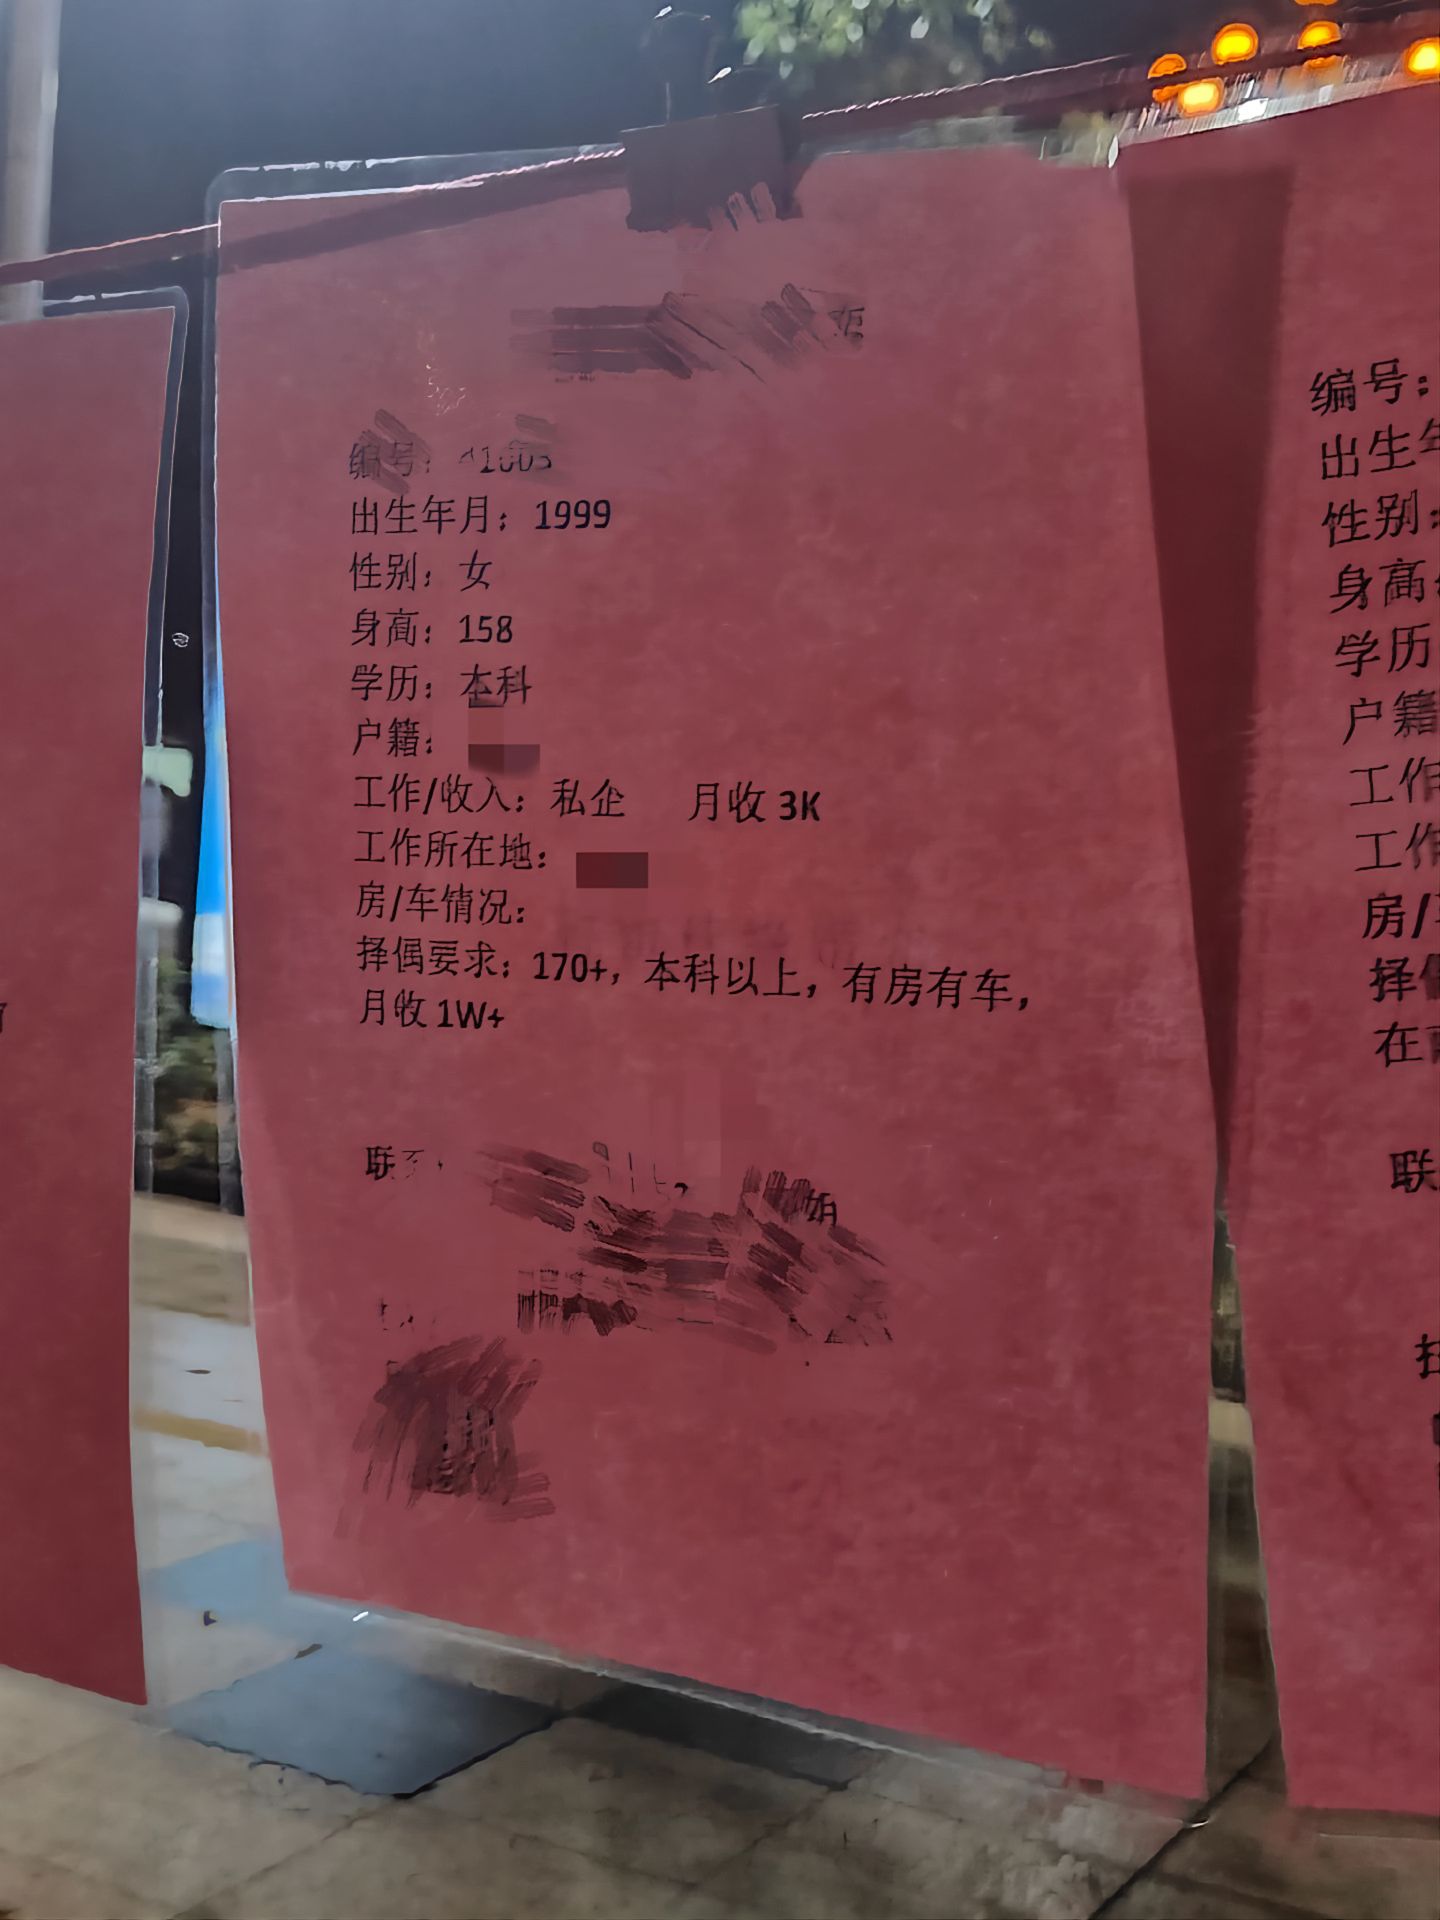 编号：
出生年月：1999
性别：女
身高：158
学历：本科
户籍：
工作/收入：私企 月收 3K
工作所在地：
房/车情况：
择偶要求：170+，本科以上，有房有车，
月收 1W+
联
编号：
出生年
性别：
身高
学历
户籍
工作
工作
房/
择偶
在
联